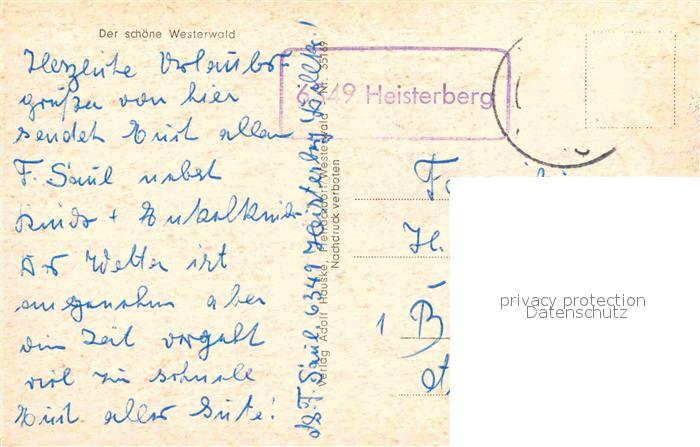 Der schöne Westerwald
Herzliche Urlaubs-
grüße von hier
sendet Euch allen
F. Saul nebst
Kinder + Enkelkinder
Das Wetter ist
angenehm aber
die Zeit vergeht
viel zu schnell
Euch alles Gute!
F. Saul, 6349 Heisterberg
Verlag Adolf Hauske, Westerwald Nr. 55169
Nachdruck verboten
6349 Heisterberg
H.
1 B
privacy protection
Datenschutz